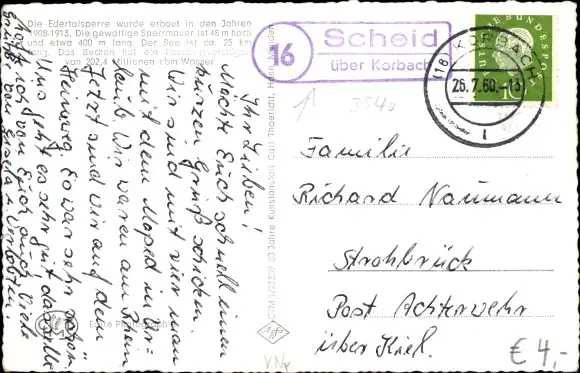 Die Edertalsperre wurde erbaut in den Jahren
1908-1913. Die gewaltige Sperrmauer ist 48 m hoch
und etwa 400 m lang. Der See ist ca. 25 km
lang. Das Becken hat ein
von 202,4 Millionen cbm Wasser
16
Scheid
über Korbach
(16) KORBACH 1
26.7.60.-13
DEUTSCHE BUNDESPOST
10
3540
Ihr Lieben!
Möchte Euch schnell einen
kurzen Gruß schicken.
Wir sind mit vier man
mit dem Moped in Ur-
laub. Wir waren am Rhein
Jetzt sind wir auf dem
Heimweg. Es war sehr schön.
Uns geht es sehr gut dasselbe
hoffe ich von Euch auch. Viele
Grüße von Gisela
Echte Photographie
Carl Thoericht, Hann. Münden
Jahre Kunstanstalt
Agfa
Familie
Richard Naumann
Strohbrück
Post Achterwehr
über Kiel.
€ 4,-